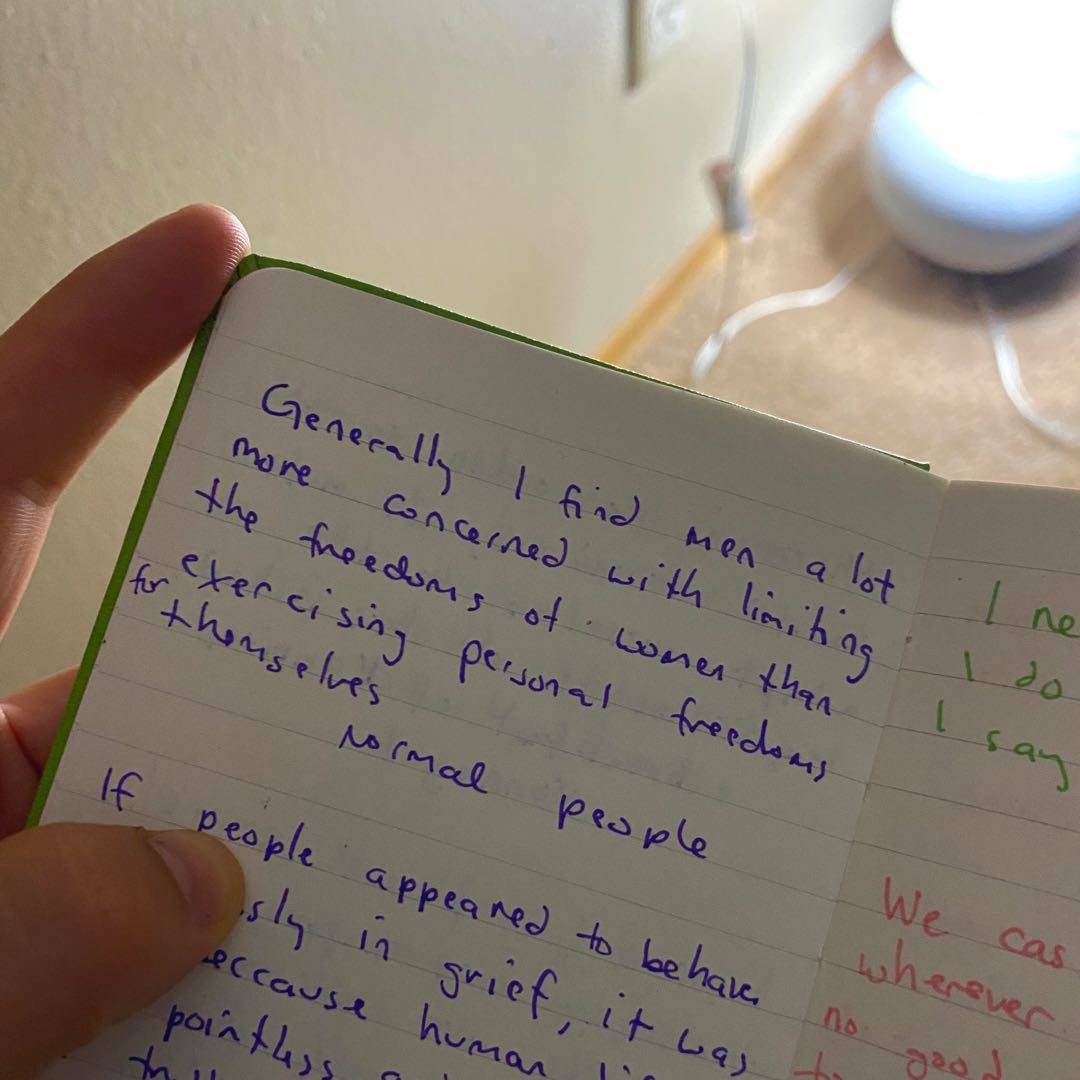 Generally I find men a lot
more concerned with limiting
the freedoms of women than
exercising personal freedoms
for themselves
Normal people
If people appeared to behave
in grief, it was
beccause human
pointless
I ne
I do
I say
We cas
wherever
no good
to